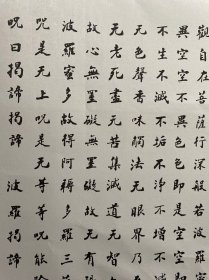 觀自在菩薩行深般若波
異空空不異色色即是空空
不生不滅不垢不淨不增不
无色聲香味觸法无眼界乃
无老死盡无苦集滅道无
故心無罣礙無罣礙故无有
波羅蜜多故得阿耨多羅三
咒是无上咒是无等等咒能
呪曰揭諦揭諦 波羅揭諦